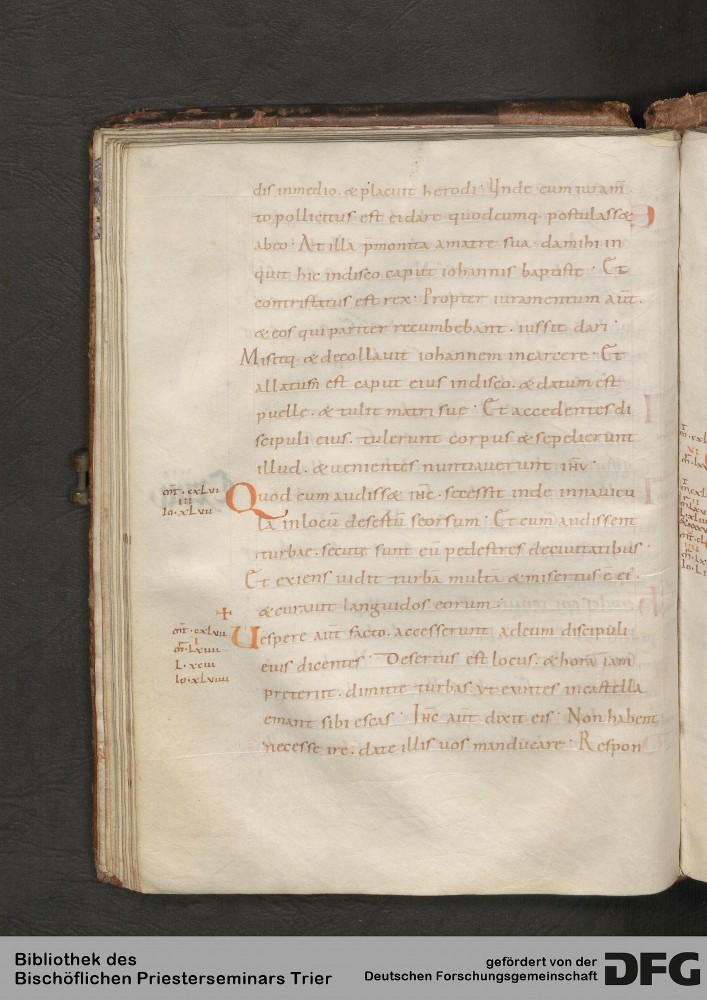 dis inmedio. & placuit herodi· Unde cum iuram̅
to pollicitus est ei dare quodcumq· postulass&
abeo· At illa p̅monita amatre sua. damihi in
quit hic indisco caput iohannis baptistę· Et
contristatus est rex· Propter iuramentum aut̅.
& eos qui pariter recumbebant. iussit dari·
Misitq· & decollauit iohannem incarcere· Et
allatum̅ est caput eius indisco. & datum est
puelle. & tulit matri sue· Et accedentes di
scipuli eius. tulerunt corpus & sepelierunt
illud. & uenientes nuntiauerunt ihu̅·
mt̅·cxlvi
iii
Io·xlvii
Quod cum audiss& ihc̅. secessit inde innauicu
la inlocu̅ desertu̅ seorsum· Et cum audissent
turbae. secute sunt eu̅ pedestres deciuitatibus·
Et exiens uidit turba̅ multa̅ & misertus e̅ ei·
& curauit languidos eorum·
mt̅·cxlvii
i
m̅·lxiiii
L·xciii
Io·xlviiii
Uespere aut̅ facto. accesserunt adeum discipuli
eius dicentes· Desertus est locus. & hora iam
preteriit. dimitte turbas. ut euntes incastella
emant sibi escas· Ihc̅ aut̅ dixit eis· Non habent
necesse ire. date illis uos manducare· Respon
Bibliothek des
Bischöflichen Priesterseminars Trier
gefördert von der
Deutschen Forschungsgemeinschaft
DFG